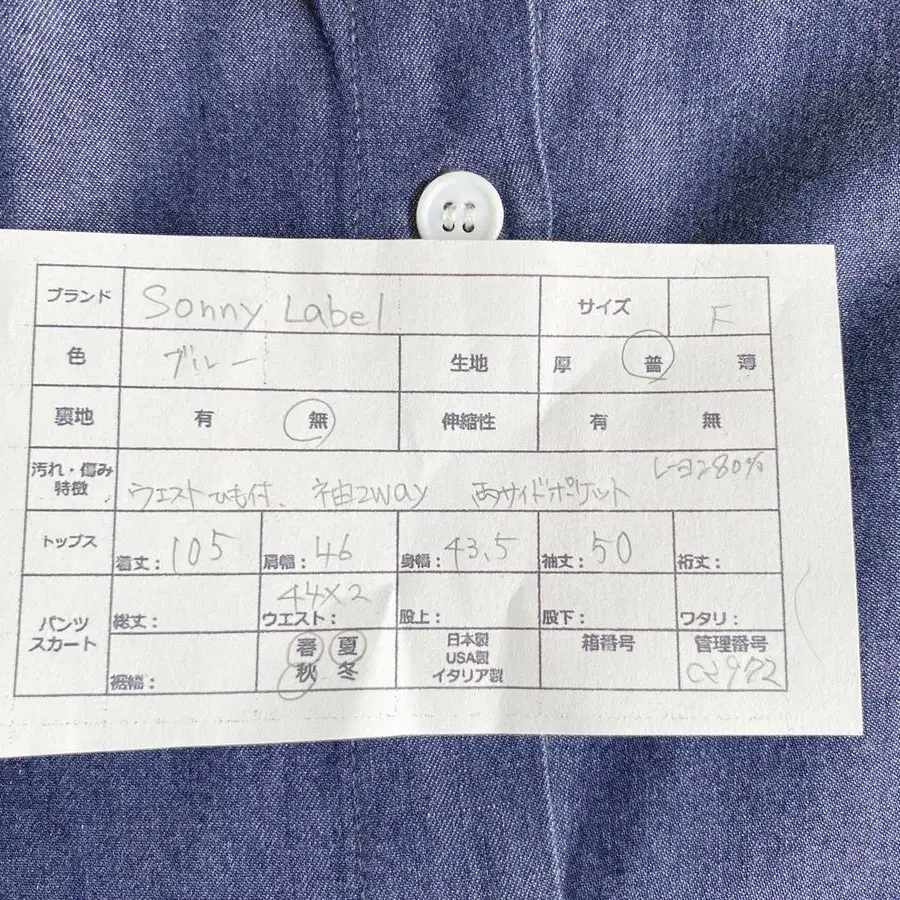 ブランド Sonny Label サイズ F
色 ブルー 生地 厚 普 薄
裏地 有 無 伸縮性 有 無
汚れ・傷み
特徴
レーヨン80%
ウエストひも付、 袖2way 両サイドポケット
トップス 着丈:105 肩幅:46 身幅:43.5 袖丈:50 裄丈:
パンツ
スカート
総丈: 44×2 ウエスト: 股上: 股下: ワタリ:
裾幅:
春 夏
秋 冬
日本製
USA製
イタリア製
箱番号
管理番号
C2972